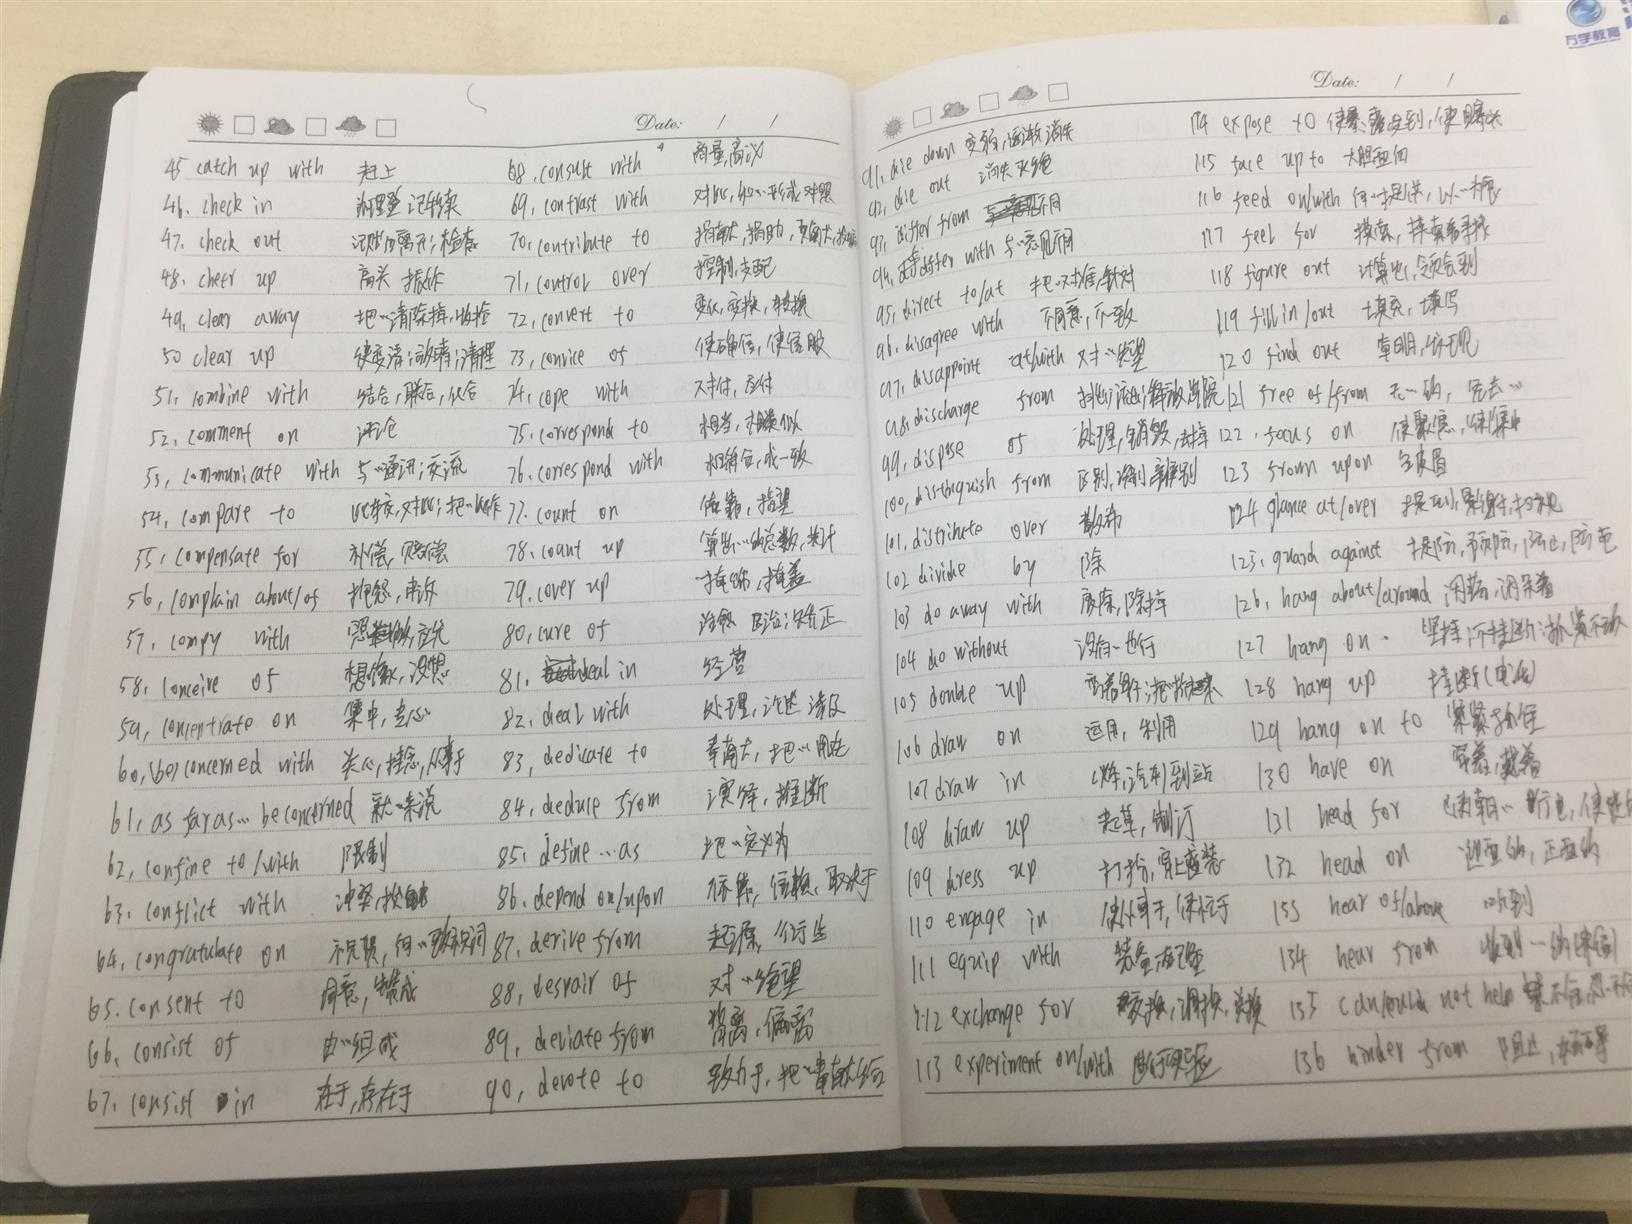 Date: / /
45 catch up with 赶上
46. check in 办理登记手续
47. check out 记账后离开;检查
48. cheer up 高兴 振作
49. clear away 把…清除掉,收拾
50 clear up 使变清;放晴;清理
51. combine with 结合,联合,化合
52. comment on 评论
53. communicate with 与…通讯;交流
54. compare to 比较,对比;把…比作
55. compensate for 补偿,赔偿
56. complain about/of 抱怨,申诉
57. compy with
58. conceive of 想象,设想
59. concentrate on 集中,专心
60. (be) concerned with 关心,挂念,从事于
61. as far as… be concerned 就…来说
62. confine to/with 限制
63. conflict with 冲突,抵触
64. congratulate on 祝贺,向…致祝词
65. consent to 同意,赞成
66. consist of 由…组成
67. consist in 在于,存在于
68. consult with 商量,商议
69. contrast with 对比,和…形成对照
70. contribute to 捐献,捐助,贡献
71. control over 控制,支配
72. convert to 变化,变换,转换
73. convice of 使确信,使信服
74. cope with 对付,应付
75. correspond to 相当,相似
76. correspond with 相符合,成一致
77. count on 依靠,指望
78. count up 算出…的总数,共计
79. cover up 掩饰,掩盖
80. cure of 治愈 医治;矫正
81. deal in 经营
82. deal with 处理,论述 涉及
83. dedicate to 奉献,把…用在
84. deduce from 演绎,推断
85. define … as 把…定义为
86. depend on/upon 依靠,信赖,取决于
87. derive from 起源,衍生
88. despair of 对…绝望
89. deviate from 背离,偏离
90. devote to 致力于,把…奉献给
Date: / /
91. die down 变弱,逐渐消失
92. die out 消失灭绝
93. differ from 不同
94. differ with 与…意见不同
95. direct to/at 把…对准/针对
96. disagree with 不同意,不一致
97. disappoint at/with 对…失望
98. discharge from
99. dispose of 处理,销毁,去掉
100. distinguish from 区别,辨别
101. distribute over 散布
102 divide by 除
103 do away with 废除,除掉
104 do without 没有…也行
105 double up
106 draw on 运用,利用
107 draw in 火车,汽车到站
108 draw up 起草,制订
109 dress up 打扮,穿上盛装
110 engage in 使从事于,使忙于
111 equip with 装备,配置
112 exchange for 交换,调换,兑换
113 experiment on/with 进行实验
114 expose to 使暴露,受到,使曝光
115 face up to 大胆面向
116 feed on/with 向…提供,以…为食
117 feel for 摸索,
118 figure out 计算出,领会到
119 fill in/out 填充,填写
120 find out 查明,发现
121 free of/from 无…的,免去…
122. focus on 使聚焦,使集中
123 frown upon 皱眉
124 glance at/over
125. guard against 提防,预防,防止,防范
126. hang about/around 闲荡,闲呆着
127 hang on.
128 hang up 挂断(电话)
129 hang on to 紧紧抓住
130 have on 穿着,戴着
131 head for
132 head on 迎面的,正面的
133 hear of/above 听到
134 hear from 收到…的(来信)
135 can/could not help
136 hinder from 阻止,妨碍
万学教育